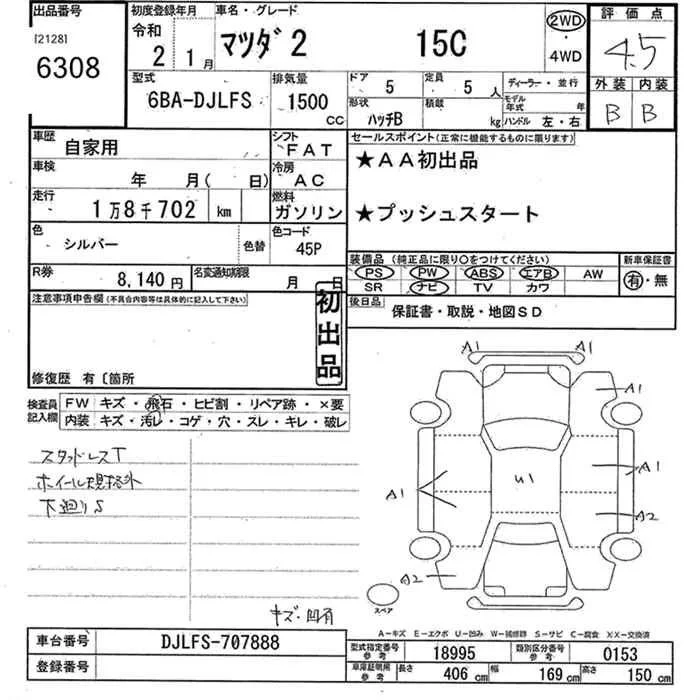 出品番号
[2128]
6308
初度登録年月
令和
2 1月
車名・グレード
マツダ2 15C
2WD
・
4WD
評価点
4.5
外装 内装
B B
型式
6BA-DJLFS
排気量
1500 CC
ドア 5
定員 5 人
ディーラー・並行
形状 ハッチB
積載 kg
モデル年式 年
ハンドル 左・右
車歴 自家用
シフト FAT
車検 年 月( 日)
冷房 AC
走行 1万8千702 km
燃料 ガソリン
色 シルバー
色替
色コード 45P
R券 8,140円
名変通知期限 月 日
セールスポイント(正常に機能するものに限ります)
★AA初出品
★プッシュスタート
装備品 (純正品に限り○をつけてください)
新車保証書
PS PW ABS エアB AW
SR ナビ TV カワ
有・無
後日品
保証書・取説・地図SD
注意事項申告欄(不具合内容等は具体的に記入して下さい)
初出品
修復歴 有〔箇所
検査員記入欄
FW キズ・飛石・ヒビ割・リペア跡・×要
内装 キズ・汚レ・コゲ・穴・スレ・キレ・破レ
スタッドレスT
ホイール規格外
下廻りS
キズ・凹有
A1 A1
A1
A1
A1
U1
A2
A2
スペア
A-キズ E-エクボ U-凹み W-補修跡 S-サビ C-腐食 XX-交換済
車台番号 DJLFS-707888
登録番号
型式指定番号 参考 18995
類別区分番号 参考 0153
車庫証明用 参考 長さ 406 cm 幅 169 cm 高さ 150 cm